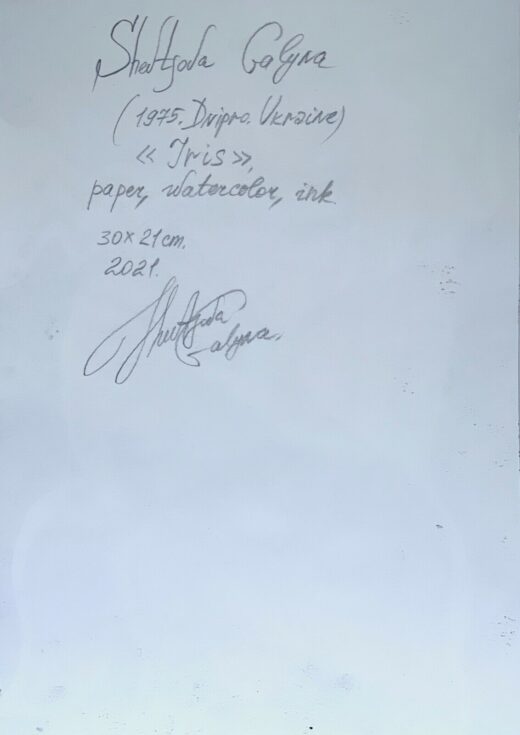 Shevtsova Galyna
(1975. Dnipro. Ukraine)
« Iris »,
paper, watercolor, ink
30x21cm.
2021.
Shevtsova
Galyna.